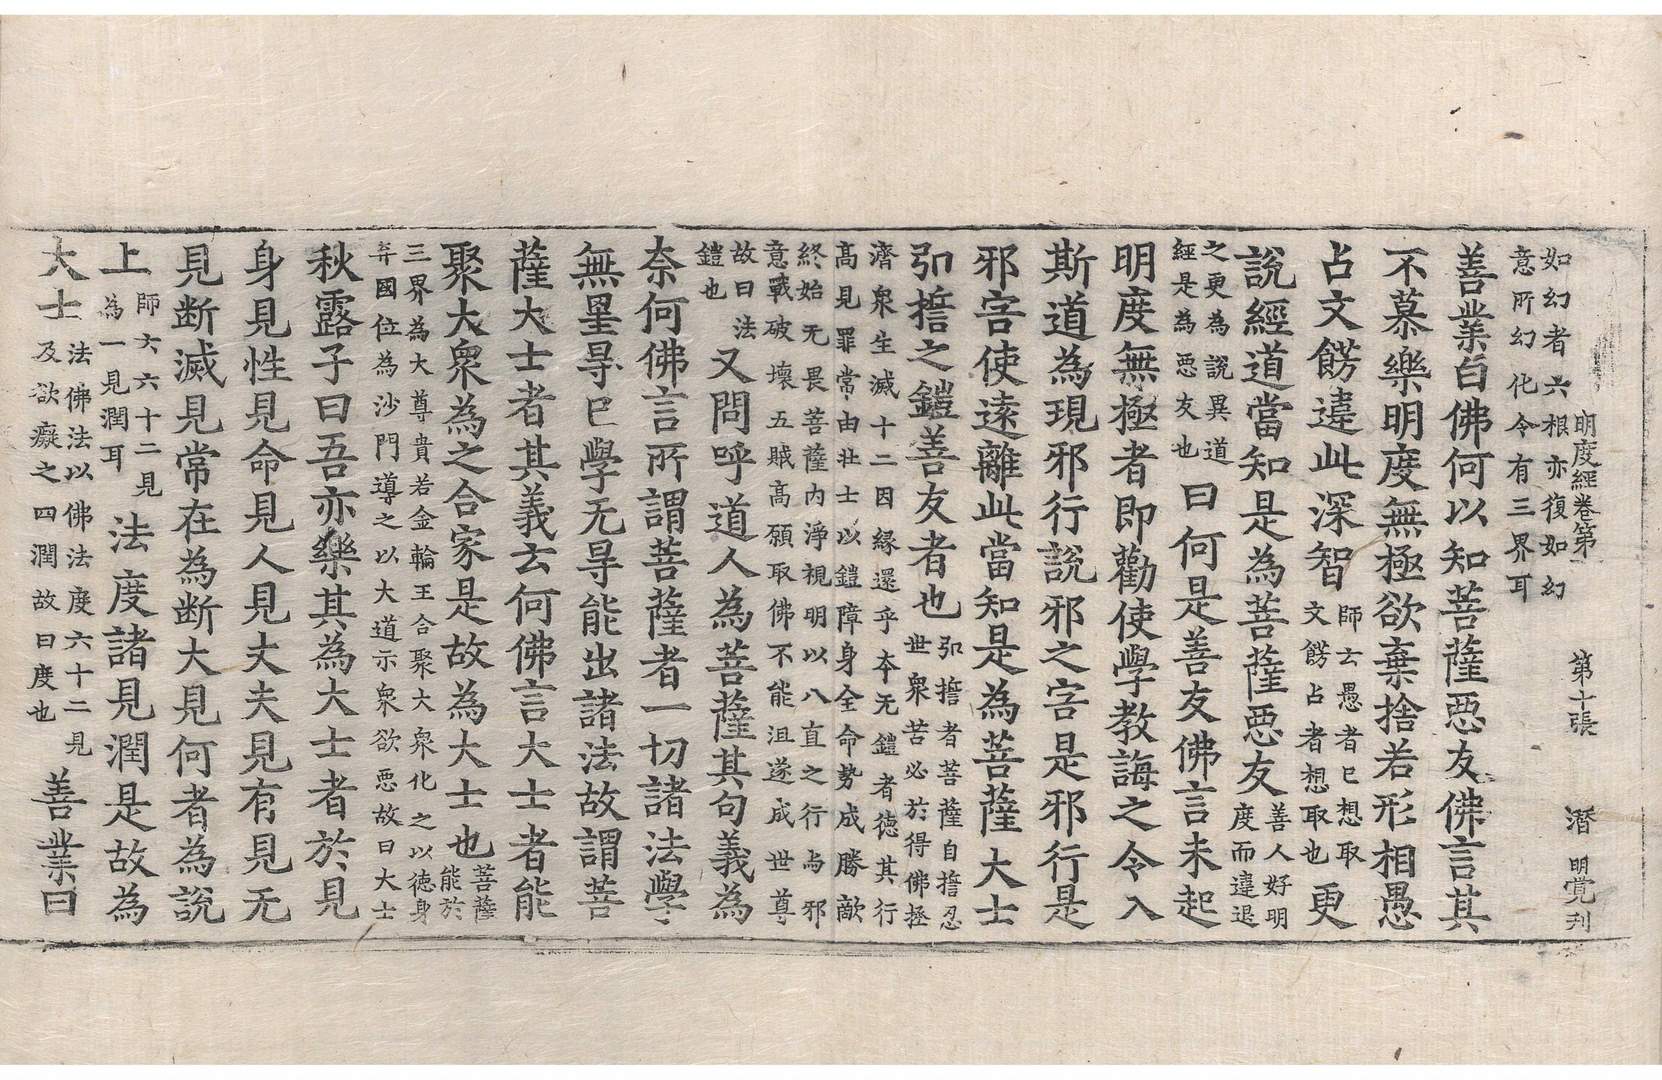 明度經卷第一 第十張 潛 明覺刊
如幻者六根亦復如幻
意所幻化令有三界耳
善業白佛何以知菩薩惡友佛言其
不慕樂明度無極欲棄捨若形相愚
占文餝違此深智 師云愚者已想取
文餝占者想取也 更
說經道當知是為菩薩惡友 善人好明
度而違退
之更為說異道
經是為惡友也 曰何是善友佛言未起
明度無極者即勸使學教誨之令入
斯道為現邪行說邪之害是邪行是
邪害使遠離此當知是為菩薩大士
弘擔之鎧善友者也 弘擔者菩薩自擔忍
世衆苦必於得佛拯
濟衆生滅十二因緣還乎本无鎧者德其行
高見罪常由壯士以鎧障身全命勢成勝敵
終始无畏菩薩内淨視明以八直之行与邪
意戰破壞五賊高願取佛不能沮遂成世尊
故曰法
鎧也 又問呼道人為菩薩其句義為
奈何佛言所謂菩薩者一切諸法學
無罣㝵已學无㝵能出諸法故謂菩
薩大士者其義云何佛言大士者能
聚大衆為之合家是故為大士也 菩薩
能於
三界為大尊貴若金輪王合聚大衆化之以德身
弃國位為沙門導之以大道示衆欲惡故曰大士
秋露子曰吾亦樂其為大士者於見
身見性見命見人見丈夫見有見无
見断滅見常在為断大見何者為說
上 師六六十二見
為一見潤耳 法度諸見潤是故為
大士 法佛法以佛法度六十二見
及欲癡之四潤故曰度也 善業曰